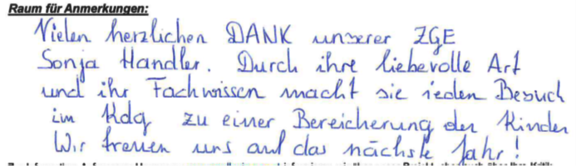 Raum für Anmerkungen:
Vielen herzlichen DANK unserer ZGE
Sonja Handler. Durch ihre liebevolle Art
und ihr Fachwissen macht sie jeden Besuch
im Kdg zu einer Bereicherung der Kinder
Wir freuen uns auf das nächste Jahr!